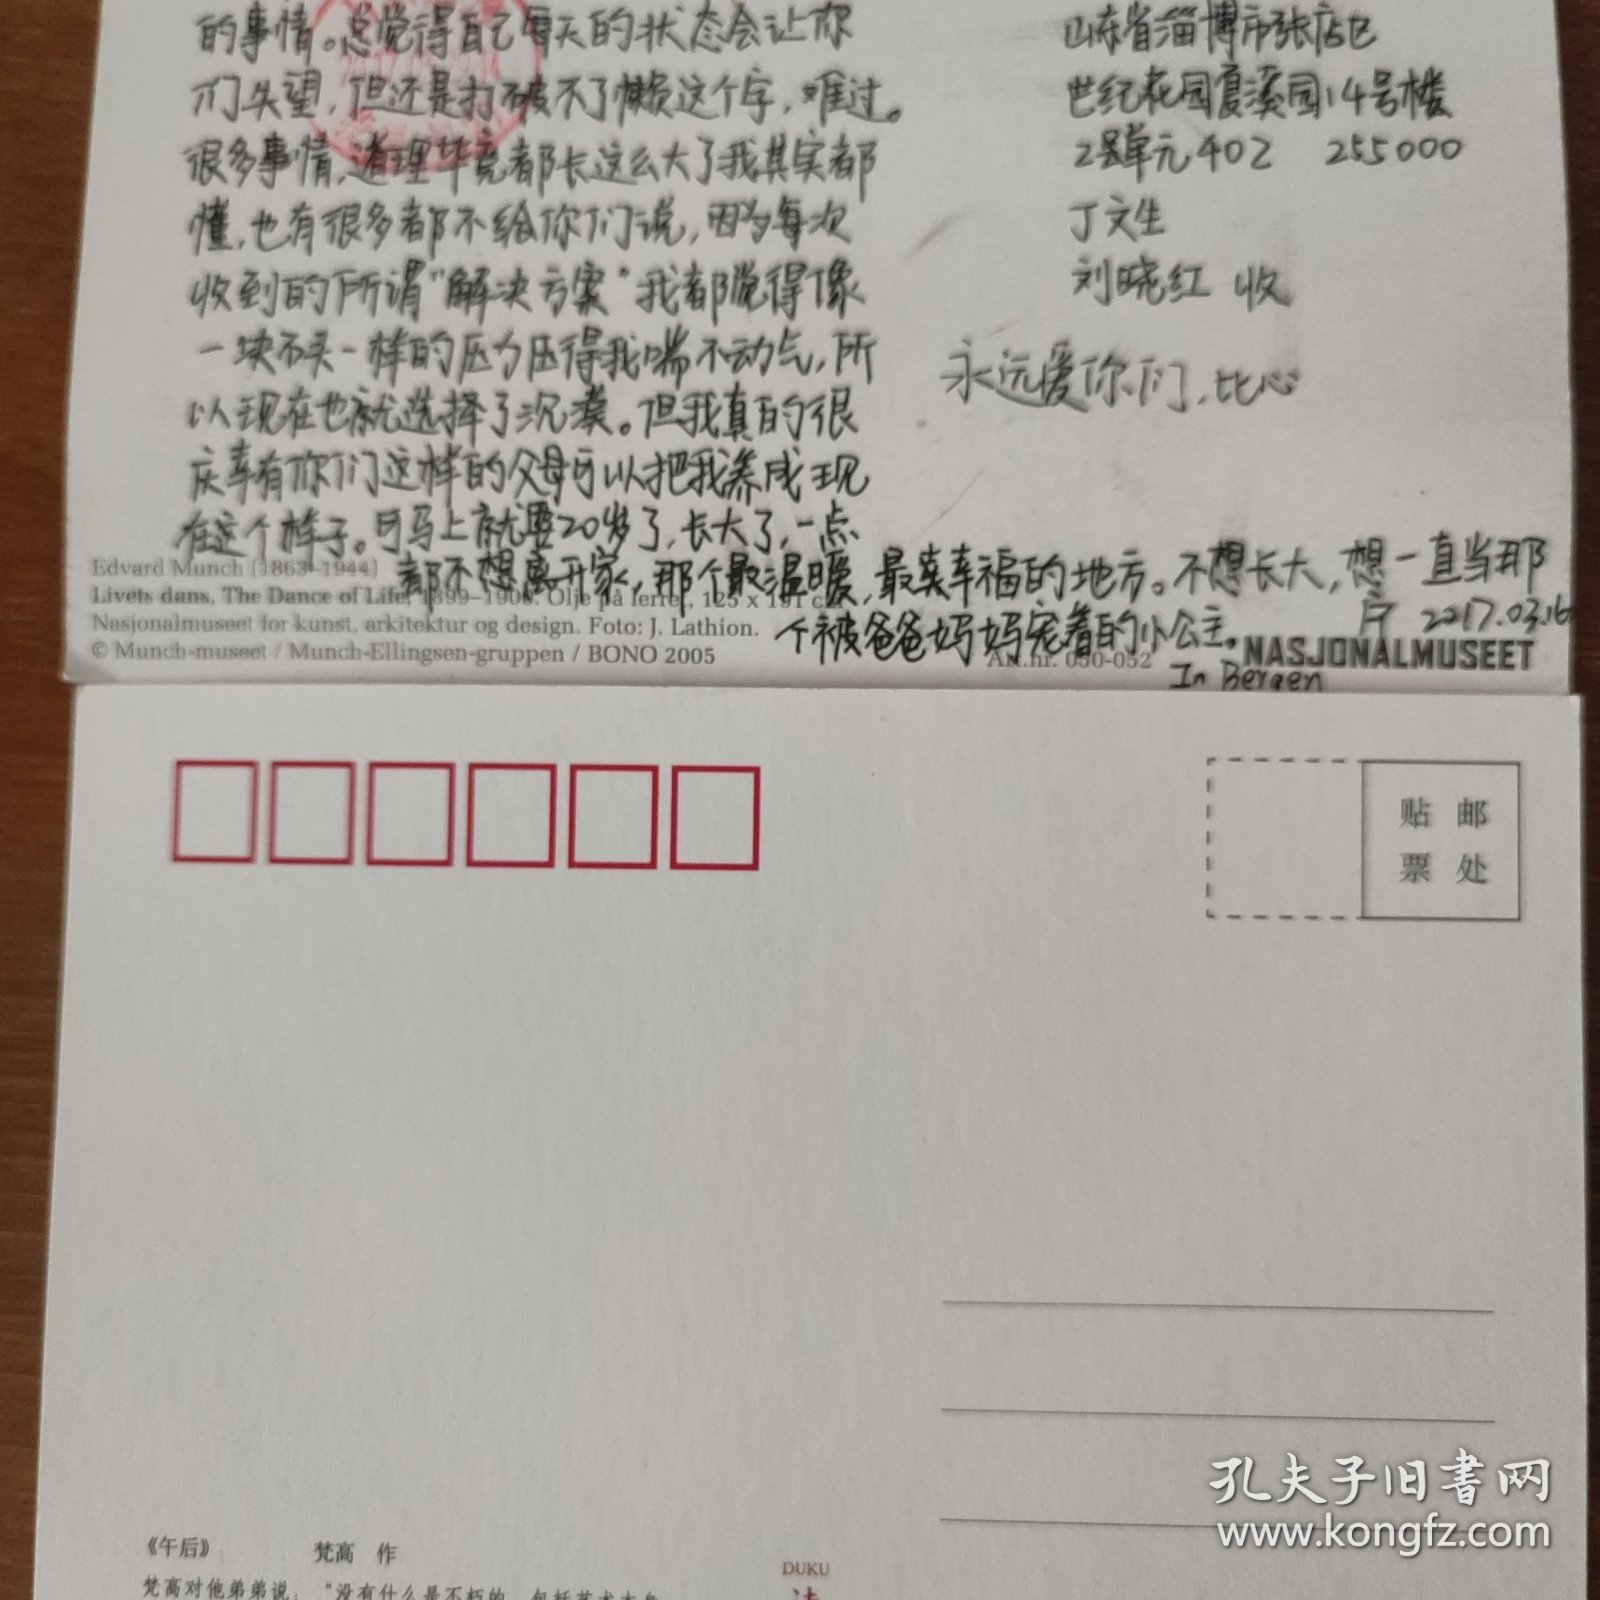 的事情。总觉得自己每天的状态会让你
们失望，但还是打破不了懒惰这个字，难过。
很多事情，道理毕竟都长这么大了我其实都
懂，也有很多都不给你们说，因为每次
收到的所谓“解决方案”我都觉得像
一块石头一样的压力压得我喘不动气，所
以现在也就选择了沉漠。但我真的很
庆幸有你们这样的父母可以把我养成现
在这个样子。可马上就要20岁了，长大了，一点
都不想离开家，那个最温暖，最幸福的地方。不想长大，想一直当那
个被爸爸妈妈宠着的小公主。
2017.03.16
In Bergen
山东省淄博市张店区
世纪花园夏溪园14号楼
2单元402 255000
丁文生
刘晓红 收
永远爱你们，比心
Edvard Munch (1863–1944)
Livets dans, The Dance of Life, 1899–1900. Olje på lerret, 125 x 191 cm
Nasjonalmuseet for kunst, arkitektur og design. Foto: J. Lathion.
© Munch-museet / Munch-Ellingsen-gruppen / BONO 2005
Art.nr. 050-052
NASJONALMUSEET
贴 邮
票 处
《午后》 梵高 作
梵高对他弟弟说：“没有什么是不朽的，包括艺术本身
DUKU
孔夫子旧书网
www.kongfz.com